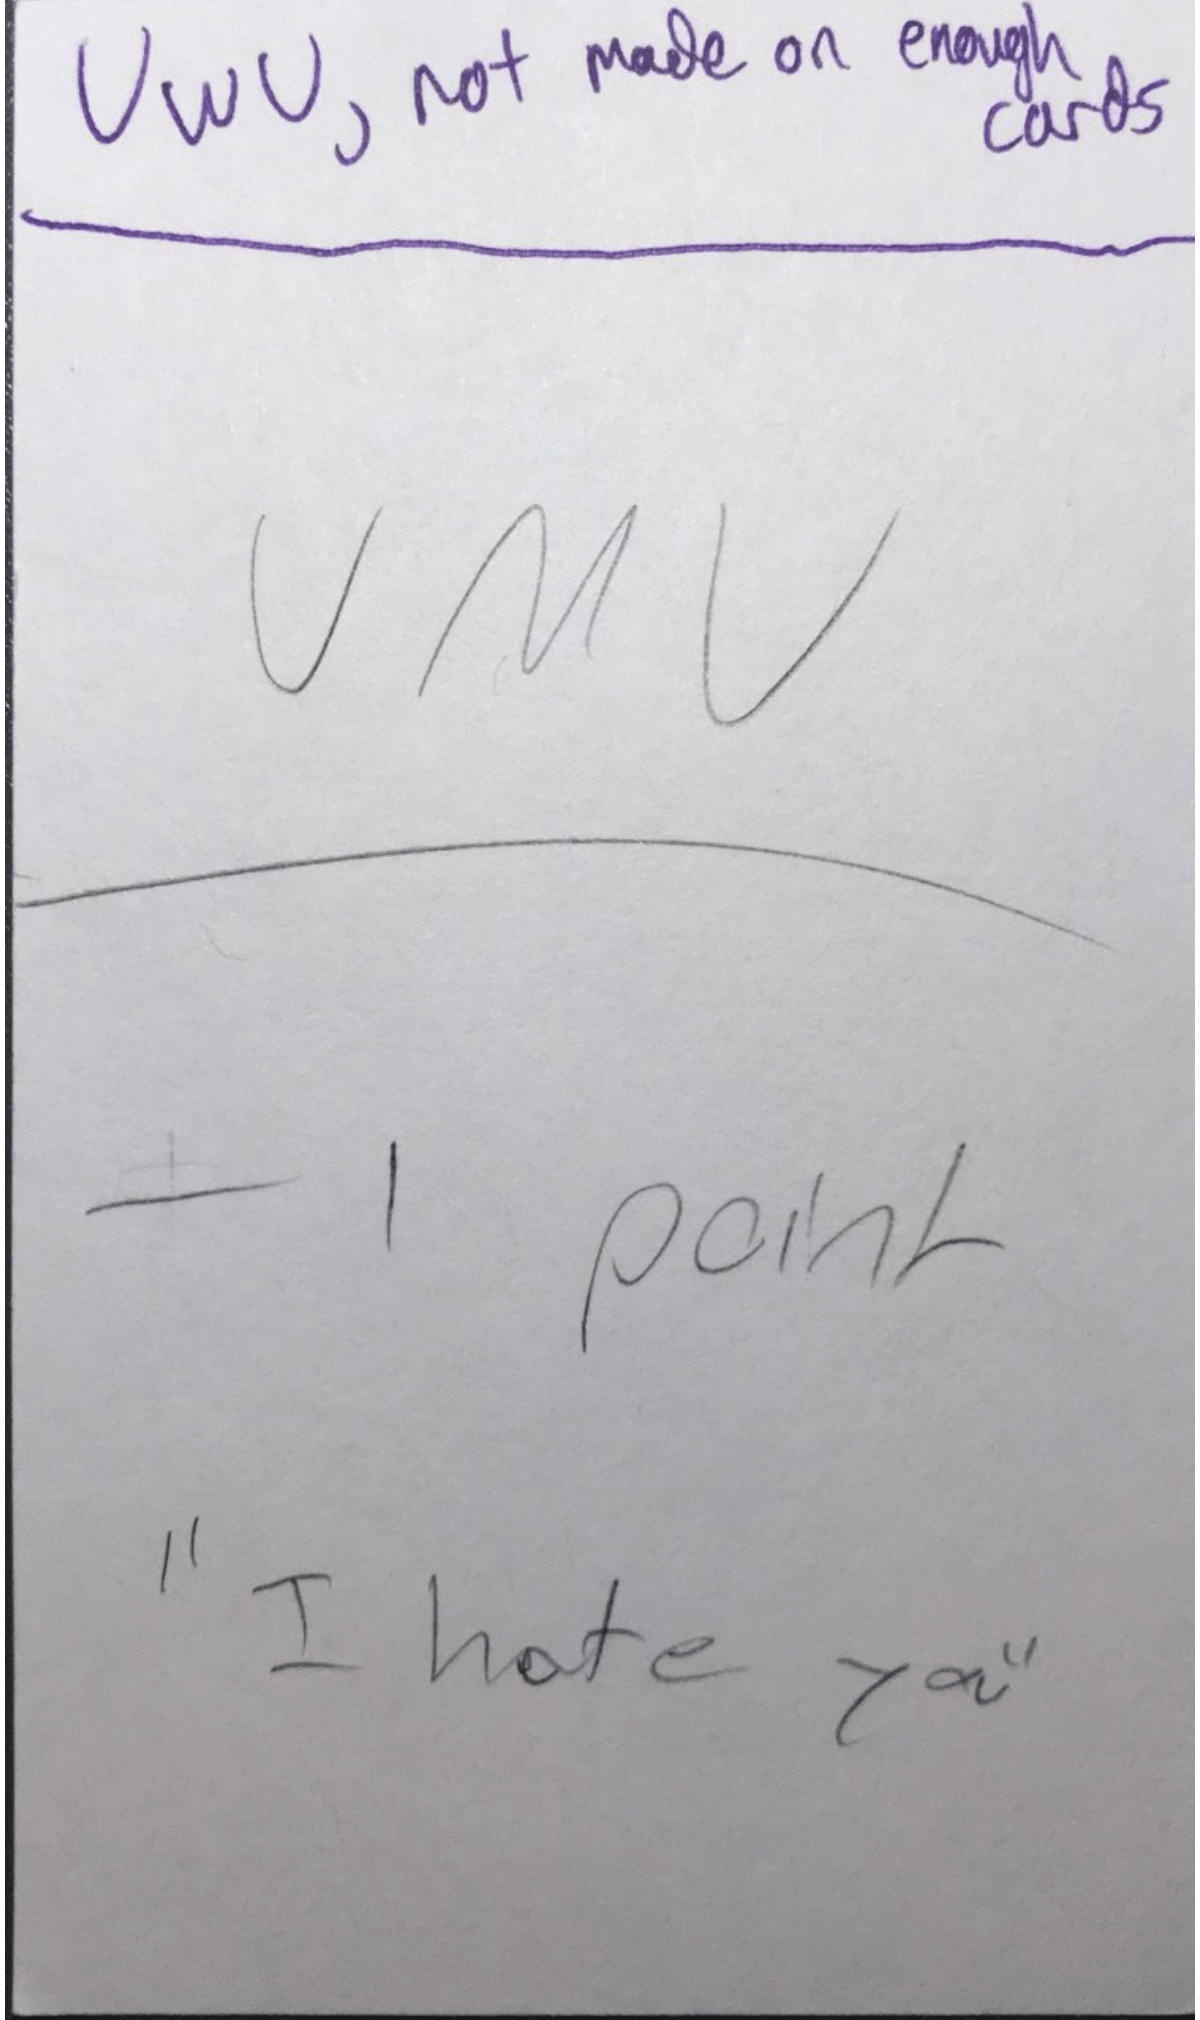 UwU, not made on enough
cards
UMU
-1 point
"I hate you"